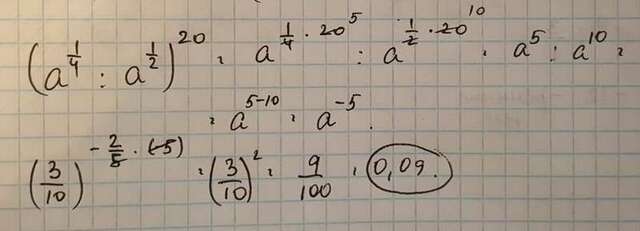 (a^{1/4} : a^{1/2})^{20} = a^{1/4 · 20^5} : a^{1/2 · 20^10} = a^5 : a^{10} =
= a^{5-10} = a^{-5}.
(3/10)^{-2/5 · (-5)} = (3/10)^2 = 9/100 = 0,09.